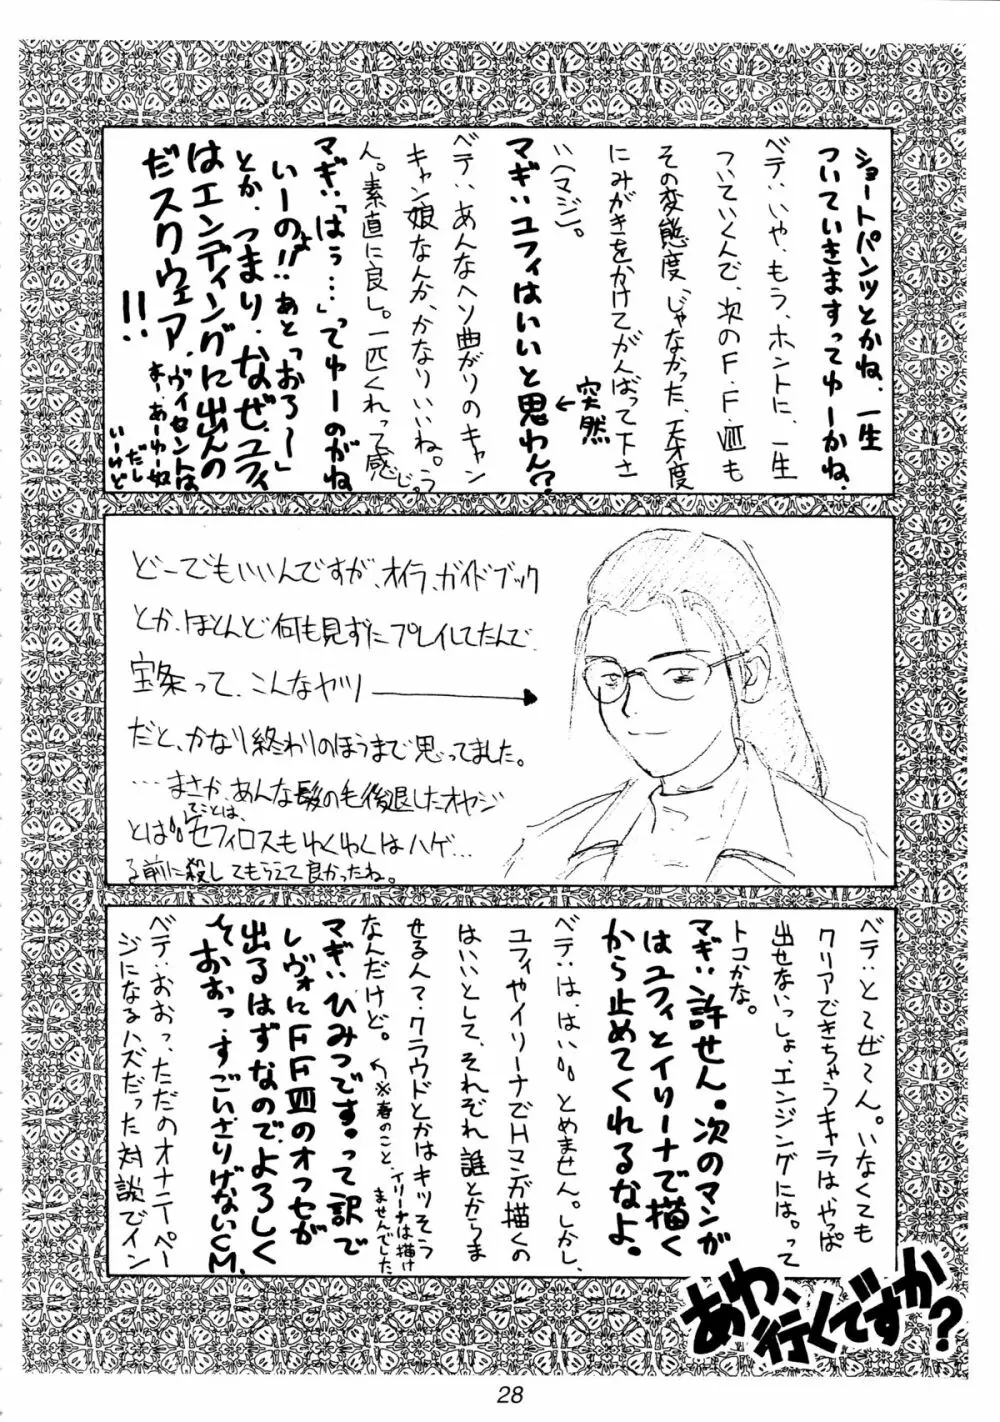 ショートパンツとかね、一生
ついていきますってゆーかね.
ベテ:いや、もう、ホントに、一生
ついていくんで、次のF.F.Ⅷも
その変態度、じゃなかった、天才度
にみがきをかけてがんばって下さ
い(マジ)。
マギ:ユフィはいいと思わん?
←突然
ベテ:あんなヘソ曲がりのキャン
キャン娘なんか、かなりいいね。う
ん。素直に良し。一匹くれって感じ。
マギ:「はぅ…」ってゆーのがね
いーのよ!!あと「おろ〜」
とか、つまり、なぜユフィ
はエンディングに出んの
だスクウェア!!
ヴィセントは
まー、あーゆー奴
だし
いーけど
どーでもいいんですが、オイラ、ガイドブック
とか、ほとんど何も見ずにプレイしてたんで、
宝条って、こんなヤツ
だと、かなり終わりのほうまで思ってました。
…まさか、あんな髪の毛後退したオヤジ
とは。。
てことは、
セフィロスもゆくゆくはハゲ…
る前に殺してもらえて良かったね。
ベテ:とて出てん。いなくても
クリアできちゃうキャラは、やっぱ
出せないっしょ、エンジングには。って
トコかな。
マギ:許せん。次のマンガ
はユフィとイリーナで描く
から止めてくれるなよ。
ベテ:は、はい。。とめません。しかし、
ユフィやイリーナでHマンガ描くの
はいいとして、それぞれ誰とからま
せるん?クラウドとかはキツそう
なんだけど。
↰※春のこと、イリーナは描け
ませんでした。
マギ:ひみつです。って訳で
レヴォにFFⅦのオフセが
出るはずなのでよろしく
っておおっ.すごいさりげないCM.
ベテ:おおっ、ただのオナニーペー
ジになるハズだった対談でイン
あわ、行くですか?
28